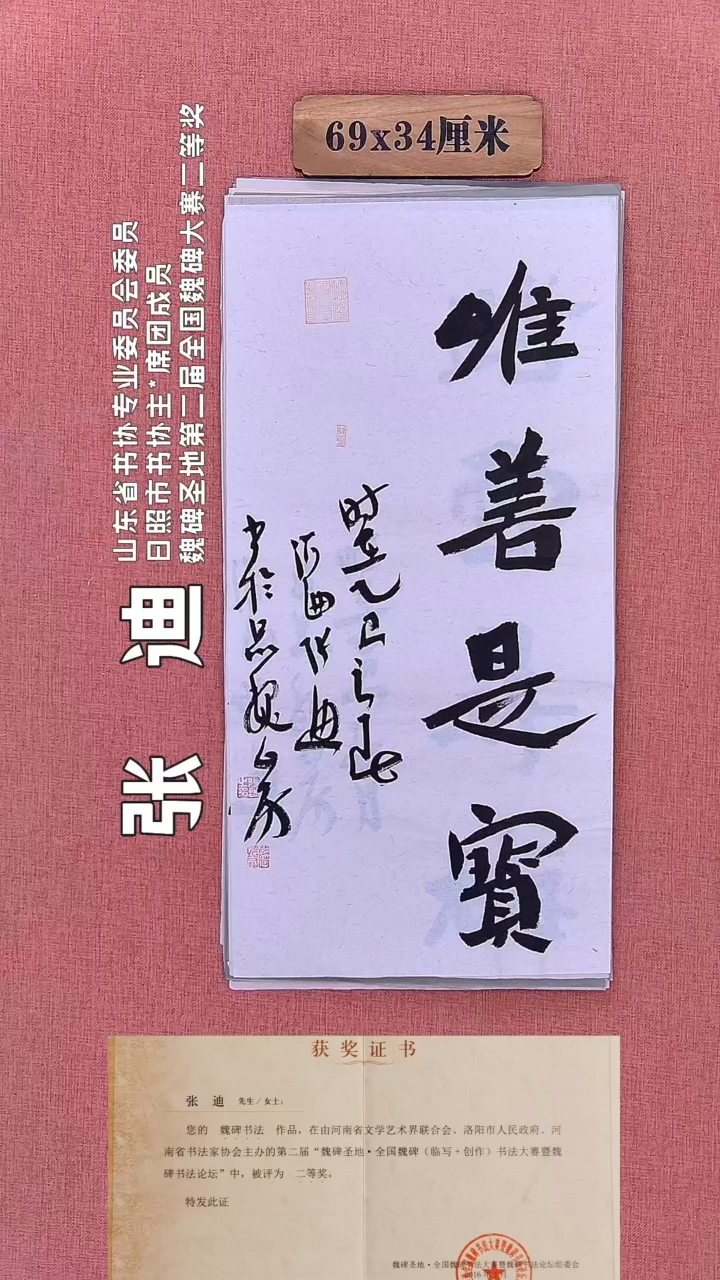 69x34厘米
唯善是寳
时在乙巳之秋
河曲张迪
书于品魏山房
张 迪
山东省书协专业委员会委员
日照市书协主*席团成员
魏碑圣地第二届全国魏碑大赛二等奖
获奖证书
张 迪 先生/女士：
您的 魏碑书法 作品，在由河南省文学艺术界联合会、洛阳市人民政府、河
南省书法家协会主办的第二届“魏碑圣地·全国魏碑（临写+创作）书法大赛暨魏
碑书法论坛”中，被评为 二等奖。
特发此证
魏碑圣地·全国魏碑书法大赛暨魏碑书法论坛组委会